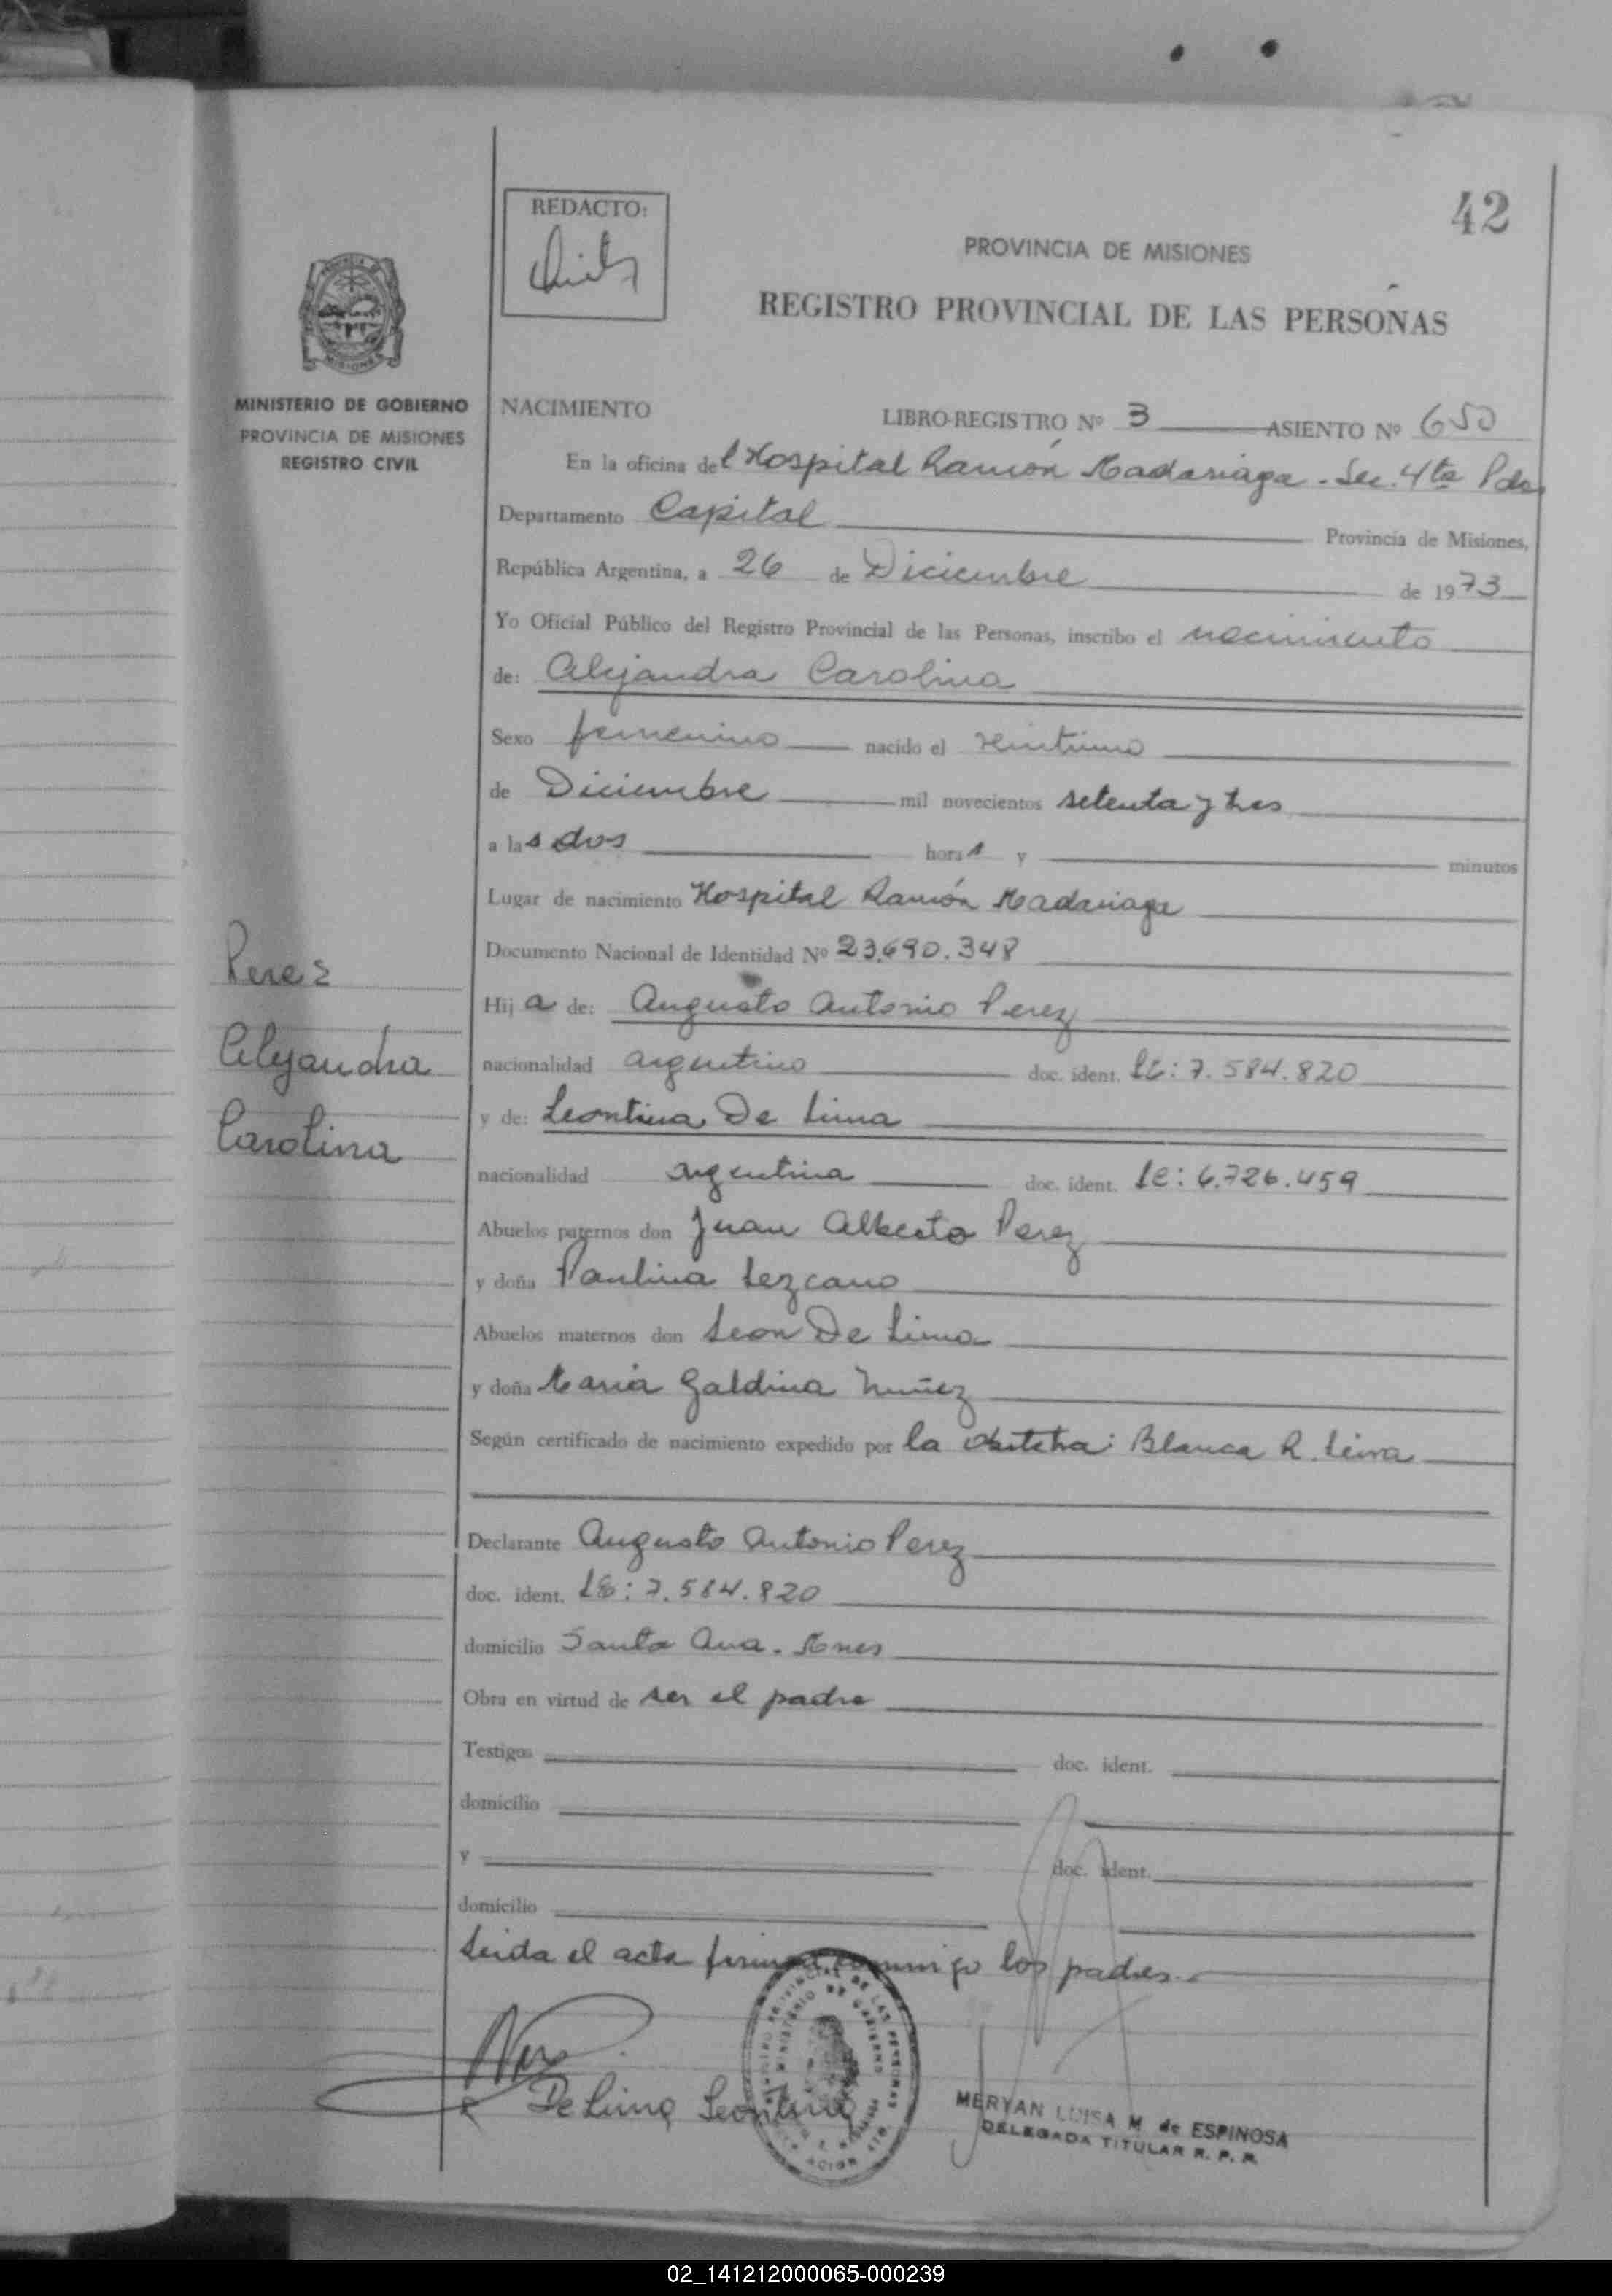 42
REDACTO:
PROVINCIA DE MISIONES
REGISTRO PROVINCIAL DE LAS PERSONAS
MINISTERIO DE GOBIERNO
PROVINCIA DE MISIONES
REGISTRO CIVIL
NACIMIENTO LIBRO-REGISTRO Nº 3 ASIENTO Nº 650
En la oficina del Hospital Ramón Madariaga - Sec. 4ta Pdas
Departamento Capital Provincia de Misiones,
República Argentina, a 26 de Diciembre de 1973
Yo Oficial Público del Registro Provincial de las Personas, inscribo el nacimiento
de: Alejandra Carolina
Sexo femenino nacido el veintiuno
de Diciembre mil novecientos setenta y tres
a las dos horas y minutos
Lugar de nacimiento Hospital Ramón Madariaga
Documento Nacional de Identidad Nº 23.690.348
Perez
Alejandra
Carolina
Hija de: Augusto Antonio Perez
nacionalidad argentino doc. ident. LE: 7.584.820
y de: Leontina De Lima
nacionalidad argentina doc. ident. LC: 6.726.459
Abuelos paternos don Juan Alberto Perez
y doña Paulina Lezcano
Abuelos maternos don Leon De Lima
y doña Maria Galdina Nuñez
Según certificado de nacimiento expedido por la obstetra: Blanca R. Leiva
Declarante Augusto Antonio Perez
doc. ident. LE: 7.584.820
domicilio Santa Ana. Mnes
Obra en virtud de ser el padre
Testigos doc. ident.
domicilio
y doc. ident.
domicilio
Leida el acta firman conmigo los padres.
De Lima Leontina
MERYAN LUISA M. de ESPINOSA
DELEGADA TITULAR R. P. P.
02_141212000065-000239